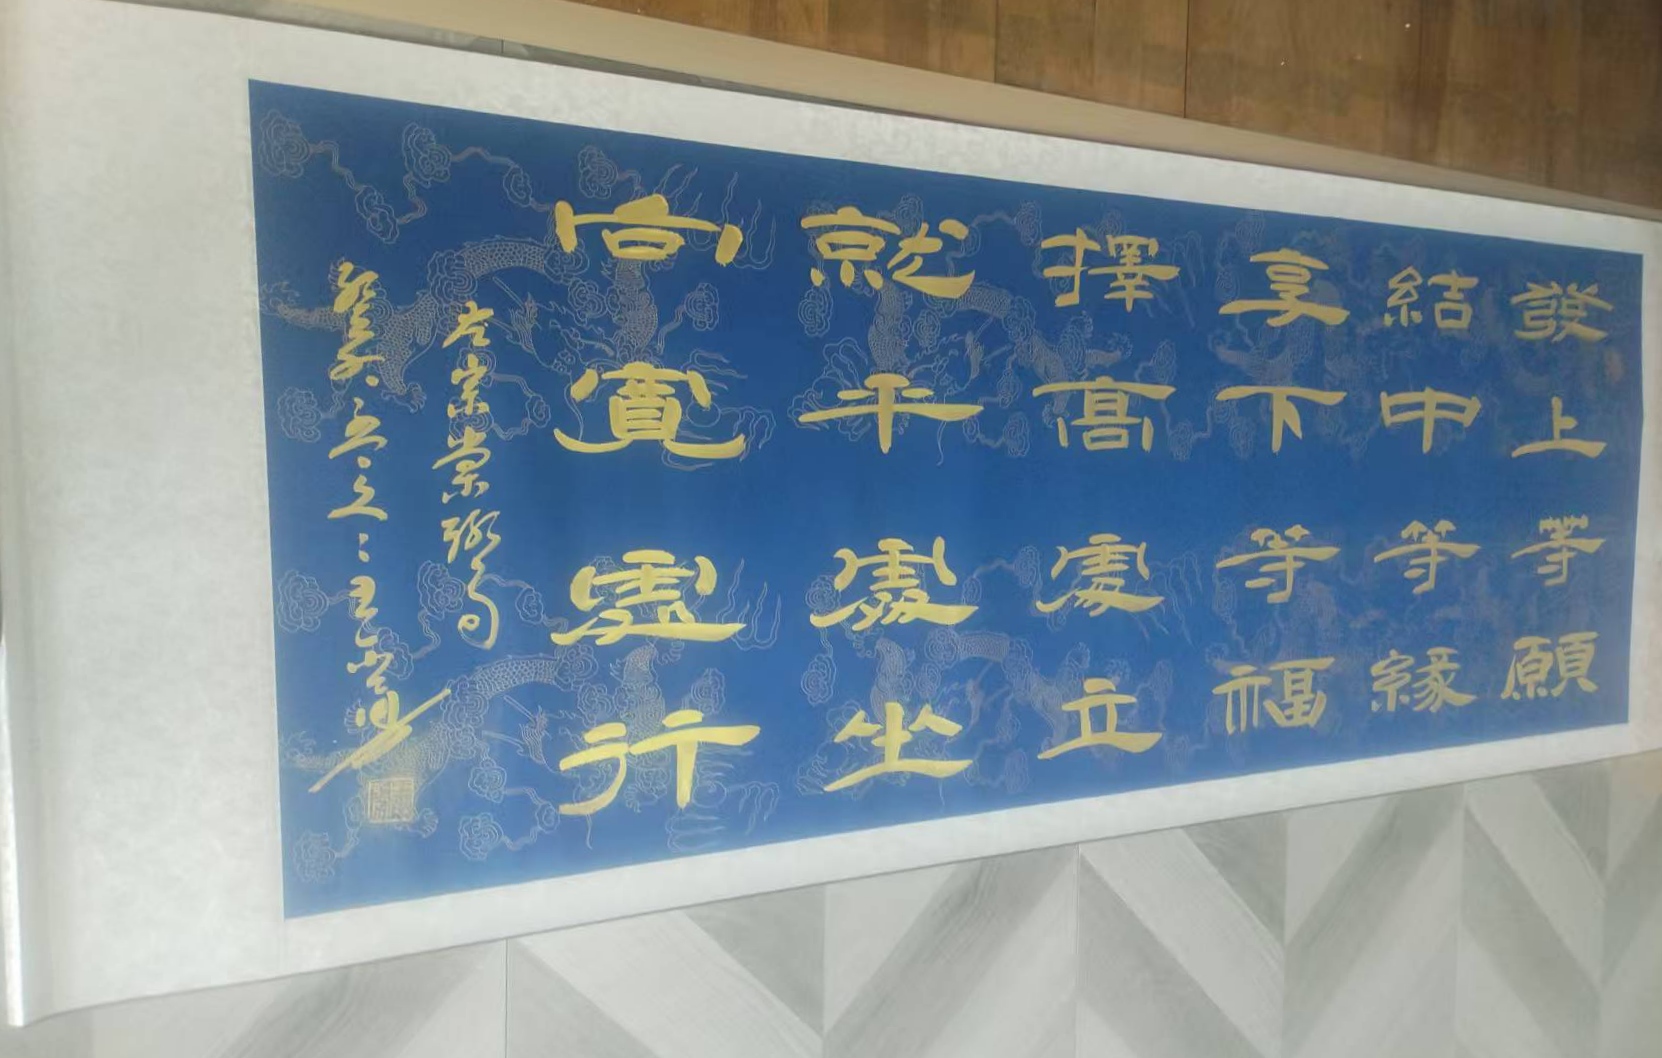 發上等願
結中等緣
享下等福
擇高處立
就平處坐
向寬處行
左宗棠聯句
癸